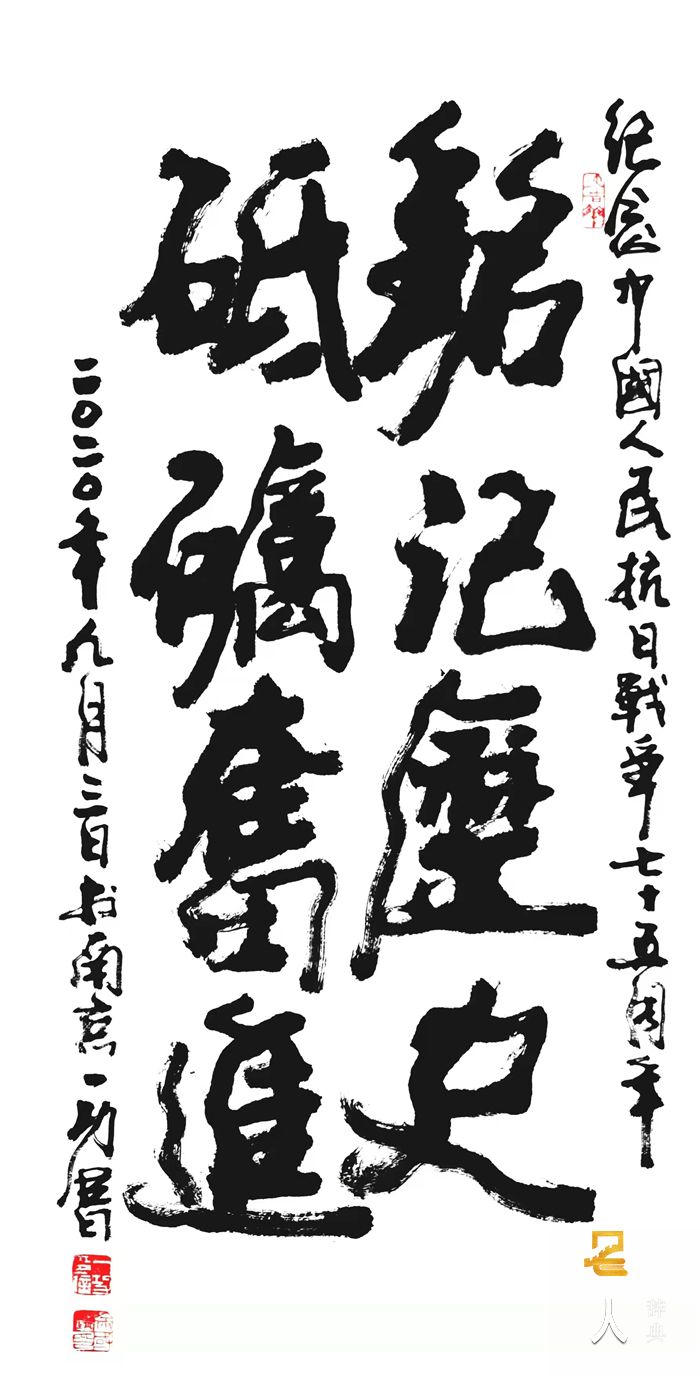 紀念中國人民抗日戰爭七十五周年
銘記歷史
砥礪奮進
二〇二〇年九月三日於南京一功書
人
辞典